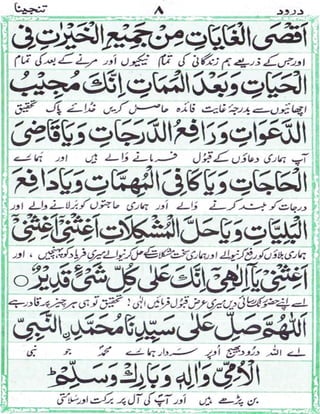 درود ۸ تنجینا
اَقْصَى الْغَايَاتِ مِنْ جَمِيْعِ الْخَيْرَاتِ فِى
اور جس کے ذریعے ہم زندگانی کی تمام نیکیوں اور مرنے کے بعد کی تمام
الْحَيَاتِ وَبَعْدَ الْمَمَاتِ اِنَّكَ مُجِيْبُ
اچھائیوں سے بدرجۂ غایت فائدہ حاصل کریں خدائے پاک تحقیق
الدَّعْوَاتِ وَرَافِعُ الدَّرَجَاتِ وَيَا قَاضِىَ
آپ ہماری دعاؤں کے قبول فرمانے والے ہیں اور ہمارے
الْحَاجَاتِ وَيَا كَافِىَ الْمُهِمَّاتِ وَيَا دَافِعَ
درجات کو بلند کرنے والے اور ہماری حاجتوں کو بر لانے والے اور
الْبَلِيَّاتِ وَيَا حَلَّ الْمُشْكِلَاتِ اَغِثْنِىْ اَغِثْنِىْ
بلاؤں کو رفع کرنیوالے اور ہماری سخت مشکلات کے حل کرنیوالے میری فریاد کو پہنچیں، اور
اَغِثْنِىْ يَا اِلٰهِىْ اِنَّكَ عَلٰى كُلِّ شَىْءٍ قَدِيْرٌ ○
اسے اپنے حضور تک رسائی دیں میری عرض قبول فرمائیں الٰہی! تحقیق تو ہی ہر چیز پر قادر ہے
اَللّٰهُمَّ صَلِّ عَلٰى سَيِّدِنَا مُحَمَّدِنِ النَّبِىِّ
اے اللہ درود بھیج اوپر سردار ہمارے محمدؐ جو نبی
الْاُمِّىِّ وَاٰلِهٖ وَبَارِكْ وَسَلِّمْ
بن پڑھے ہیں اور آپؐ کی آل پر برکت اور سلامتی